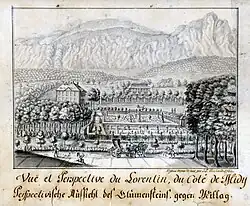 Vuë et Perspective du Lorentin, du Coté de Midy
Perspectivische Aussicht des Blumensteins, gegen Mittag.